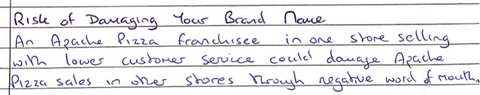 Risk of Damaging Your Brand Name
An Apache Pizza franchisee in one store selling
with lower customer service could damage Apache
Pizza sales in other stores through negative word of mouth.